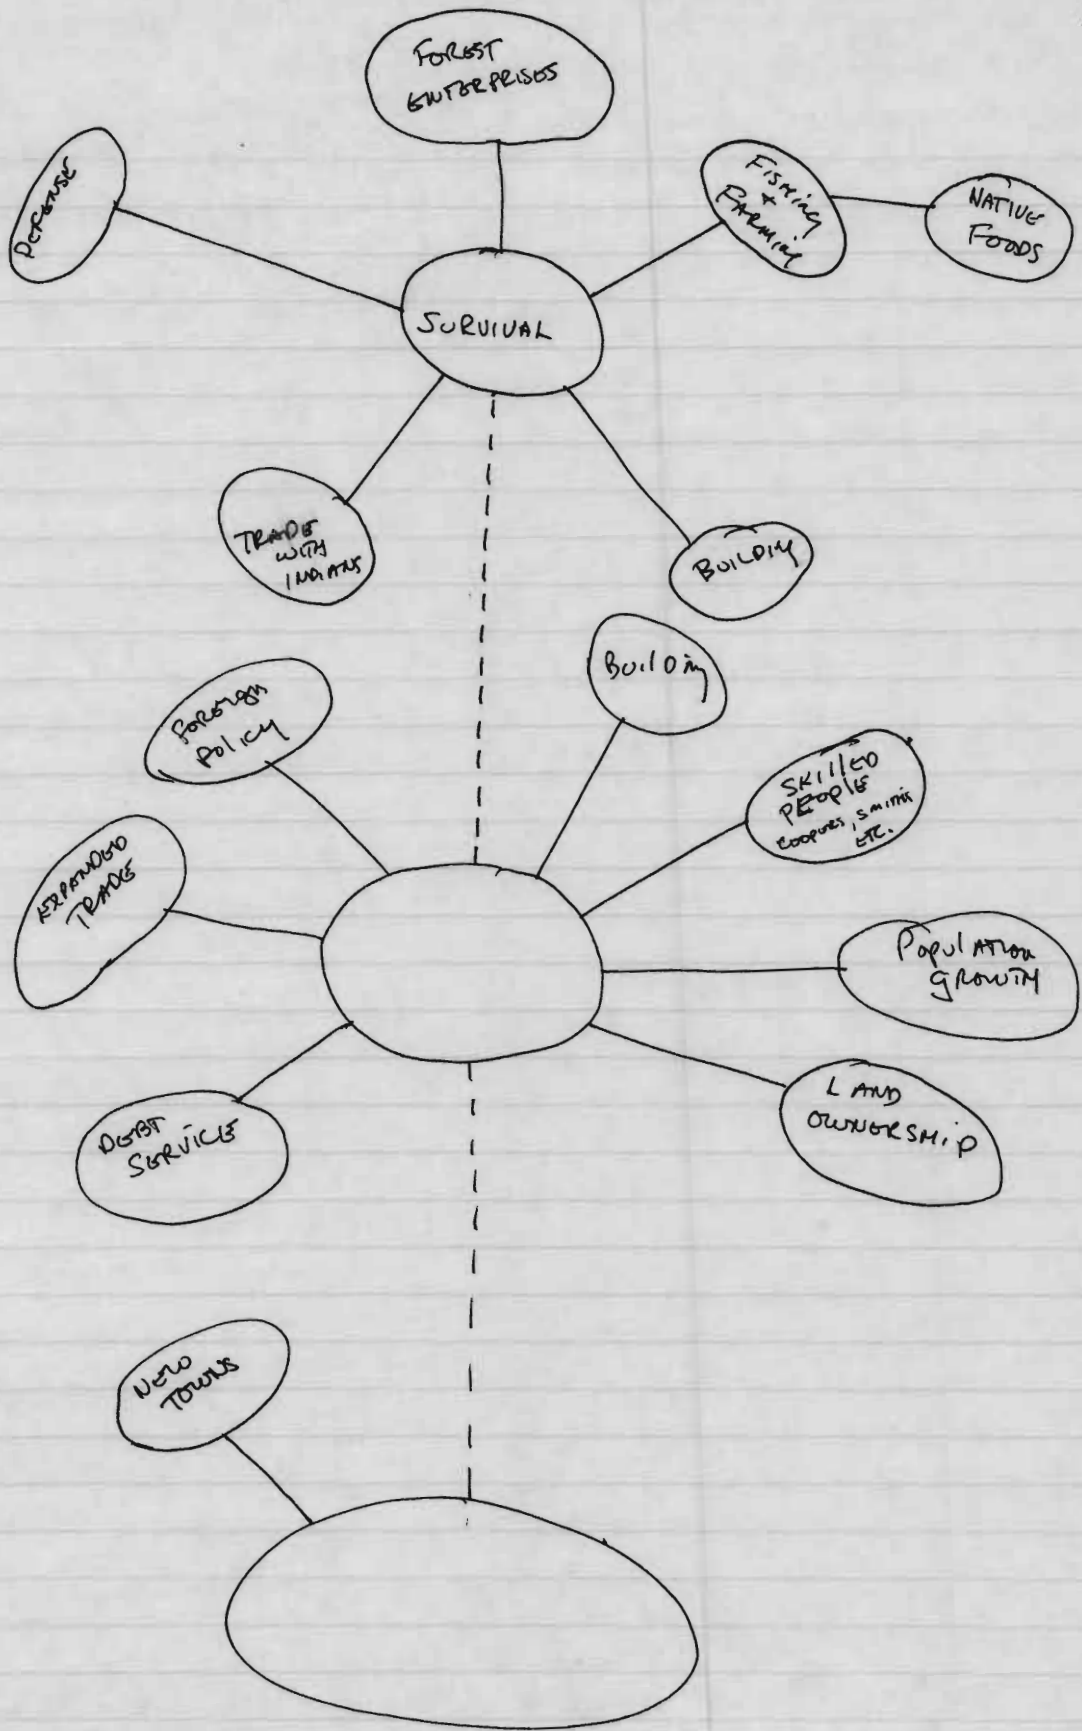 FOREST
ENTERPRISES
DEFENSE
FISHING
+
FARMING
NATIVE
FOODS
SURVIVAL
TRADE
WITH
INDIANS
BUILDING
BUILDING
FOREIGN
POLICY
SKILLED
PEOPLE
COOPERS, SMITHS
ETC.
EXPANDED
TRADE
POPULATION
GROWTH
LAND
OWNERSHIP
DEBT
SERVICE
NEW
TOWNS